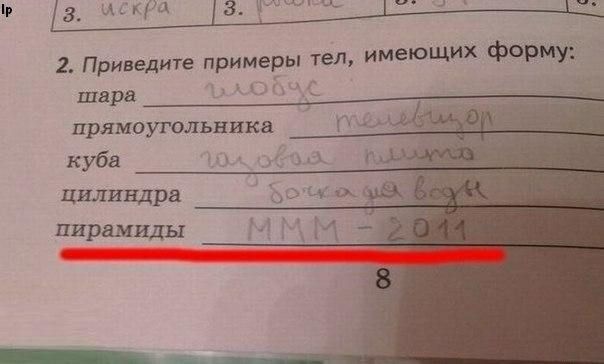 lp
3. искра 3. 3.
2. Приведите примеры тел, имеющих форму:
шара глобус
прямоугольника телевизор
куба газовая плита
цилиндра бочка для воды
пирамиды МММ - 2011
8